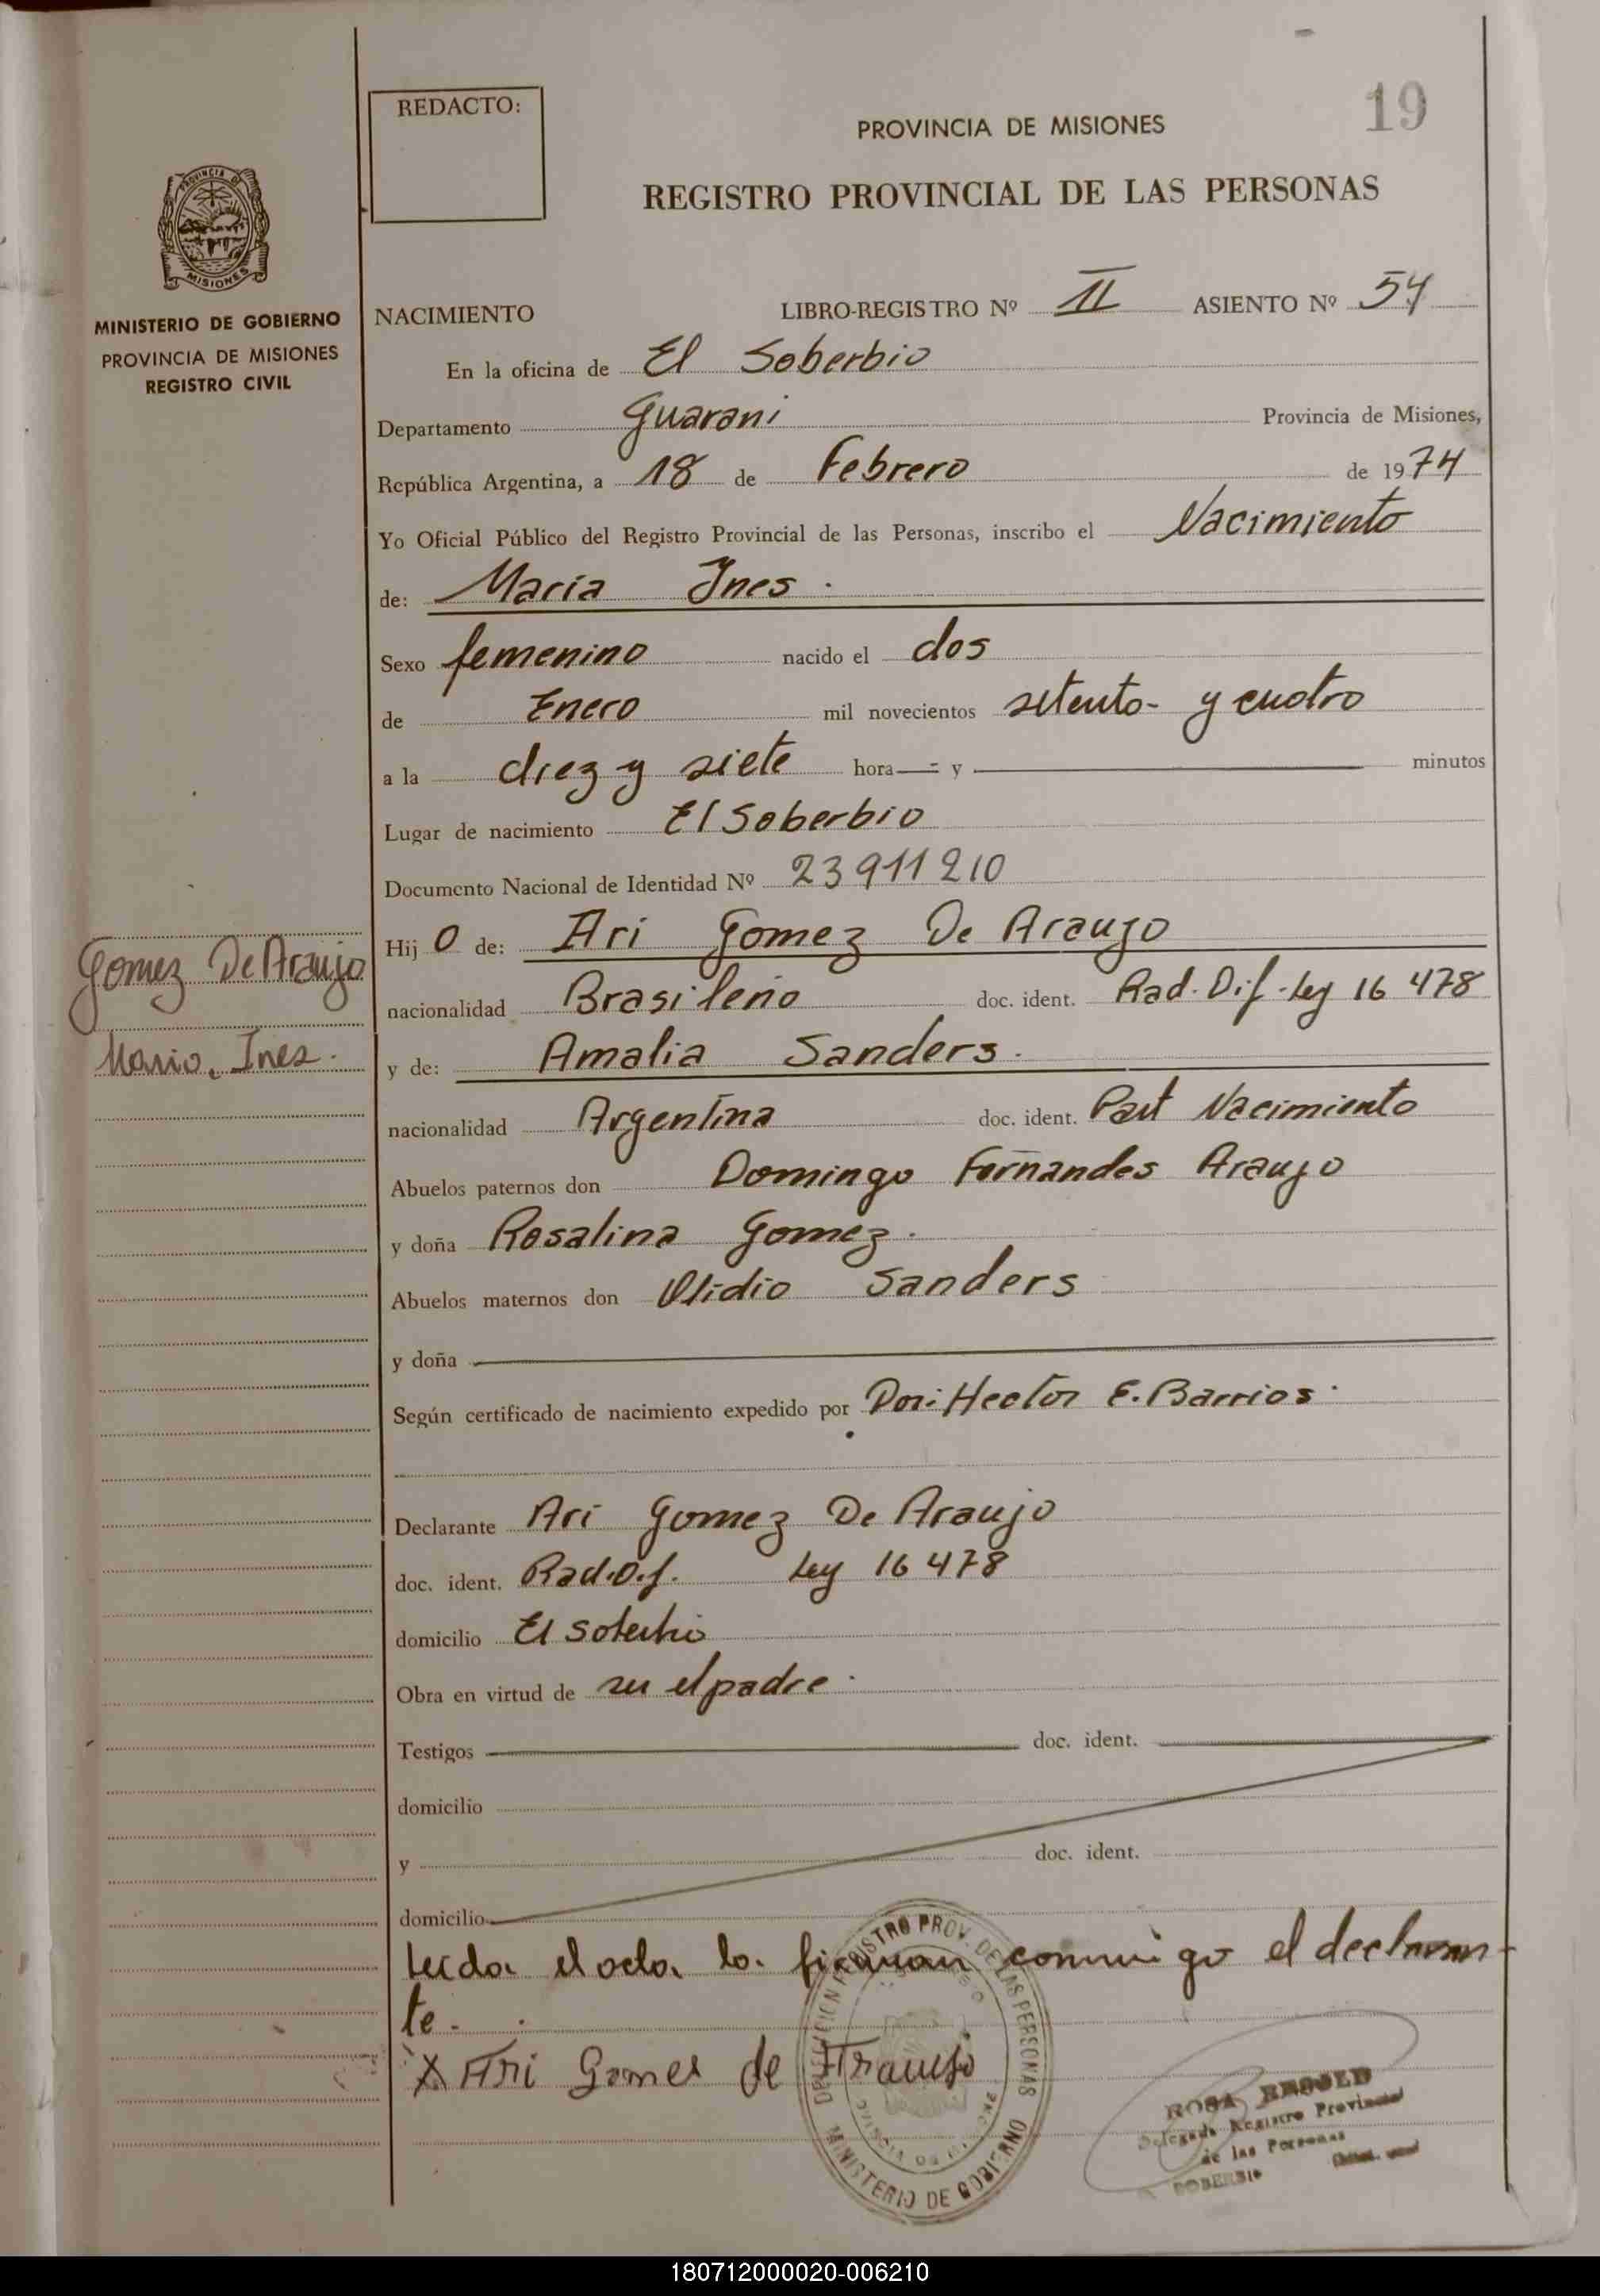 REDACTO:
PROVINCIA DE MISIONES
19
REGISTRO PROVINCIAL DE LAS PERSONAS
PROVINCIA DE
MISIONES
MINISTERIO DE GOBIERNO
PROVINCIA DE MISIONES
REGISTRO CIVIL
NACIMIENTO LIBRO-REGISTRO Nº II ASIENTO Nº 54
En la oficina de El Soberbio
Departamento Guarani Provincia de Misiones,
República Argentina, a 18 de Febrero de 1974
Yo Oficial Público del Registro Provincial de las Personas, inscribo el Nacimiento
de: Maria Ines.
Sexo femenino nacido el dos
de Enero mil novecientos setenta- y cuatro
a la diez y siete hora — y — minutos
Lugar de nacimiento El Soberbio
Documento Nacional de Identidad Nº 23911210
Hij o de: Ari Gomez De Araujo
nacionalidad Brasileño doc. ident. Rad. Dif. Ley 16 478
y de: Amalia Sanders.
nacionalidad Argentina doc. ident. Part Nacimiento
Abuelos paternos don Domingo Fernandes Araujo
y doña Rosalina Gomez.
Abuelos maternos don Olidio Sanders
y doña
Según certificado de nacimiento expedido por Hector E. Barrios.
Declarante Ari Gomez De Araujo
doc. ident. Rad. Def. Ley 16 478
domicilio El Soberbio
Obra en virtud de ser el padre.
Testigos doc. ident.
domicilio
y doc. ident.
domicilio
Leida el acta la firman conmigo el declaran-
te.
X Ari Gomes de Araujo
Gomez De Araujo
Maria Ines.
DELEGACION REGISTRO PROV. DE LAS PERSONAS
MINISTERIO DE GOBIERNO
ROSA
Delegado Registro Provincial
de las Personas
SOBERBIO
180712000020-006210